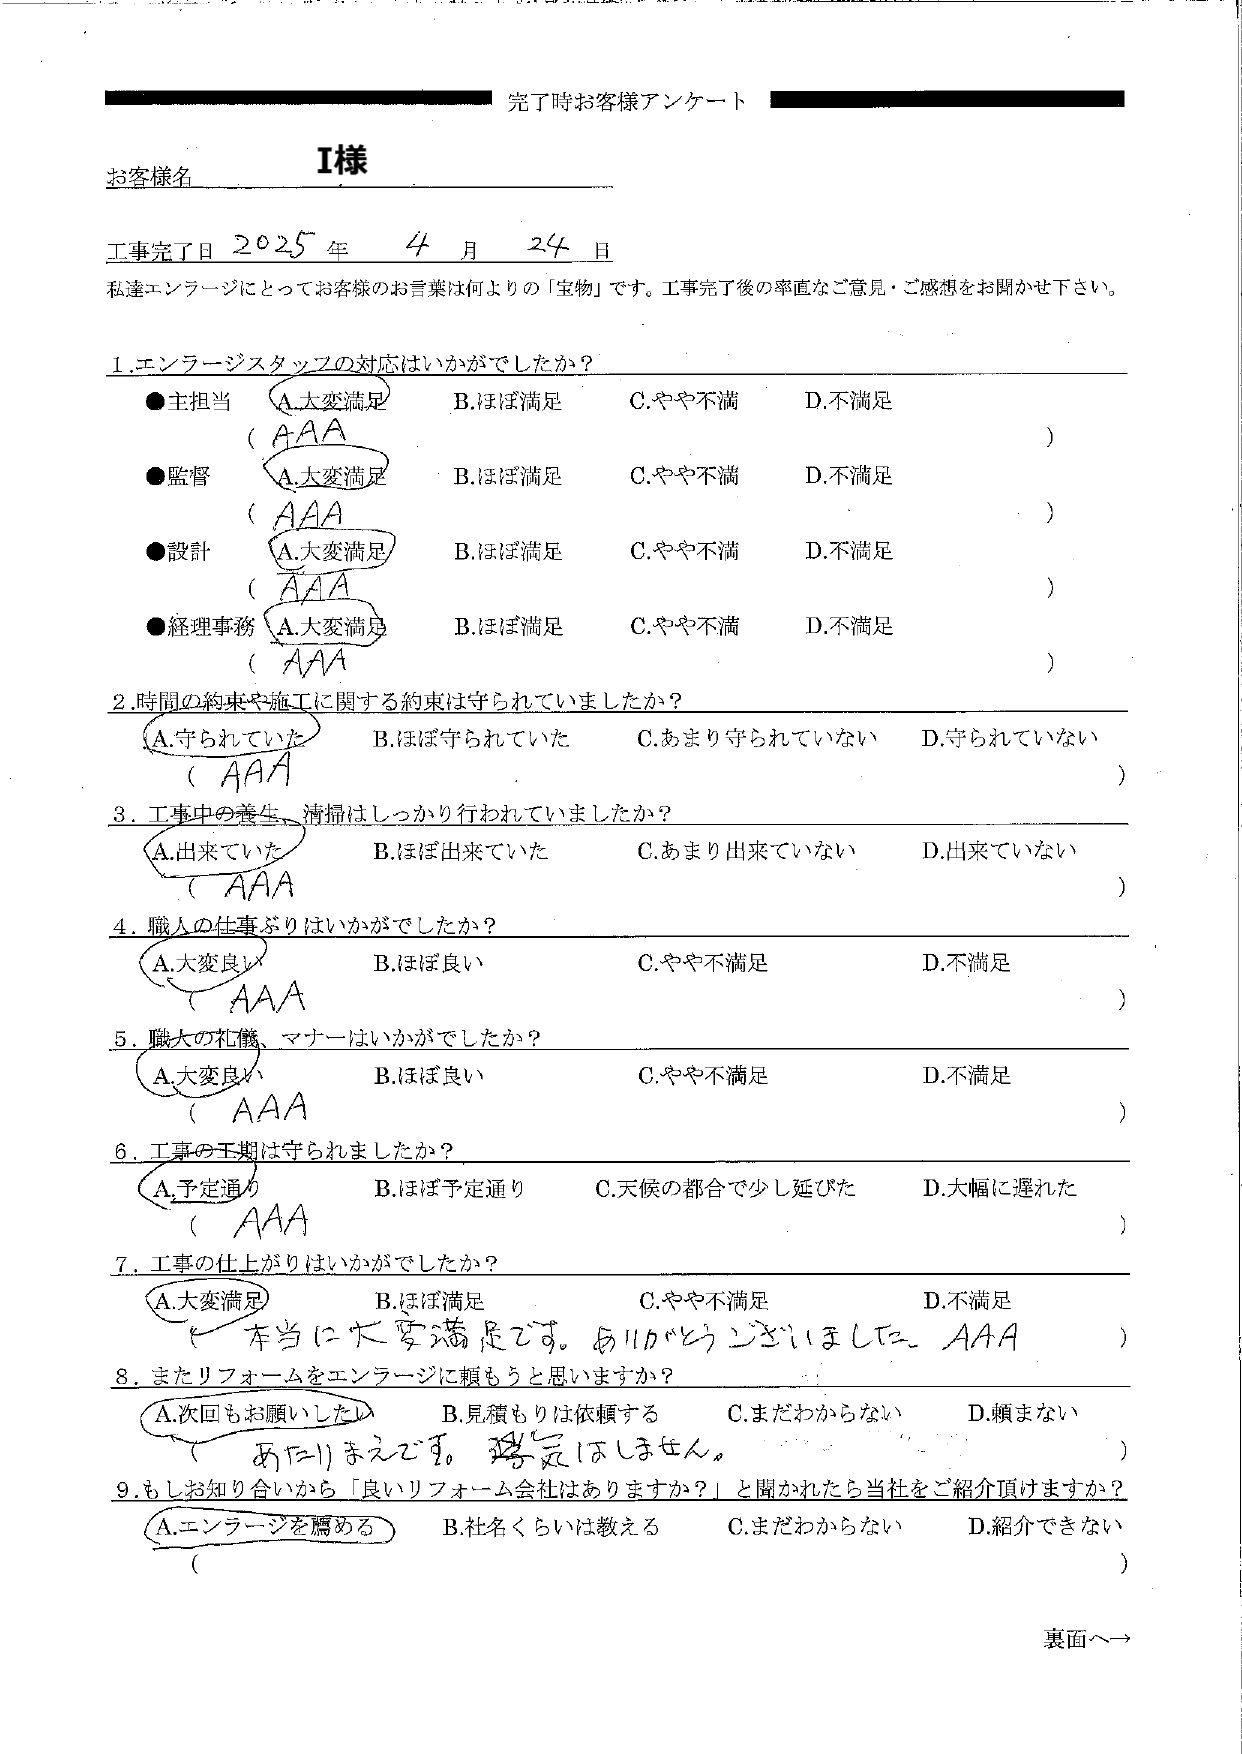 完了時お客様アンケート
お客様名 I様
工事完了日 2025 年 4 月 24 日
私達エンラージにとってお客様のお言葉は何よりの「宝物」です。工事完了後の率直なご意見・ご感想をお聞かせ下さい。
1.エンラージスタッフの対応はいかがでしたか？
●主担当 A.大変満足 B.ほぼ満足 C.やや不満 D.不満足
( AAA )
●監督 A.大変満足 B.ほぼ満足 C.やや不満 D.不満足
( AAA )
●設計 A.大変満足 B.ほぼ満足 C.やや不満 D.不満足
( AAA )
●経理事務 A.大変満足 B.ほぼ満足 C.やや不満 D.不満足
( AAA )
2.時間の約束や施工に関する約束は守られていましたか？
A.守られていた B.ほぼ守られていた C.あまり守られていない D.守られていない
( AAA )
3. 工事中の養生、清掃はしっかり行われていましたか？
A.出来ていた B.ほぼ出来ていた C.あまり出来ていない D.出来ていない
( AAA )
4. 職人の仕事ぶりはいかがでしたか？
A.大変良い B.ほぼ良い C.やや不満足 D.不満足
( AAA )
5. 職人の礼儀、マナーはいかがでしたか？
A.大変良い B.ほぼ良い C.やや不満足 D.不満足
( AAA )
6. 工事の工期は守られましたか？
A.予定通り B.ほぼ予定通り C.天候の都合で少し延びた D.大幅に遅れた
( AAA )
7. 工事の仕上がりはいかがでしたか？
A.大変満足 B.ほぼ満足 C.やや不満足 D.不満足
( 本当に大変満足です。ありがとうございました AAA )
8. またリフォームをエンラージに頼もうと思いますか？
A.次回もお願いしたい B.見積もりは依頼する C.まだわからない D.頼まない
( あたりまえです。 気はしません。 )
9.もしお知り合いから「良いリフォーム会社はありますか？」と聞かれたら当社をご紹介頂けますか？
A.エンラージを薦める B.社名くらいは教える C.まだわからない D.紹介できない
( )
裏面へ→